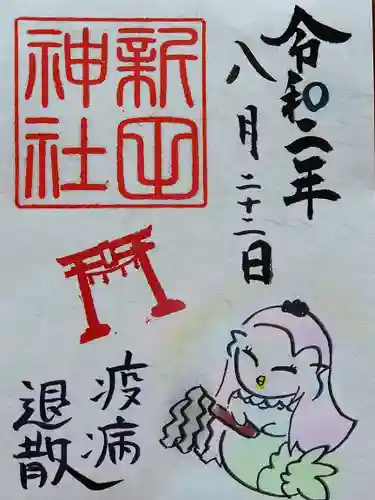 新田
神社
令和二年
八月二十二日
疫病
退散